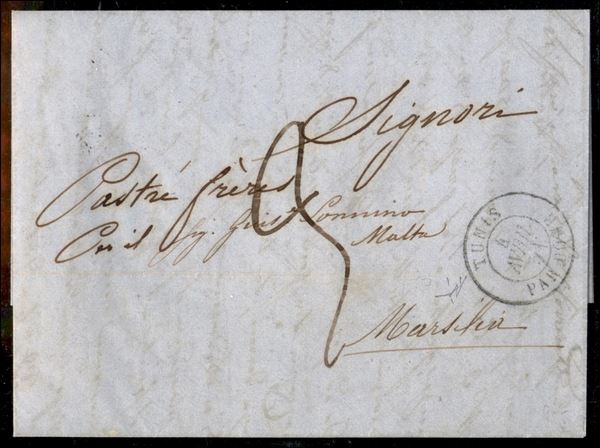 Signori
Pastré frères
Per il Sig. Gius Commino
Malta
Marsilia
TUNIS
6
AVRIL